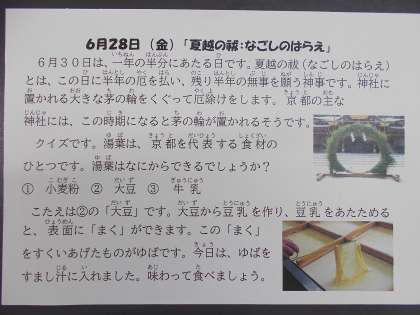 6月28日（金）「夏越の祓：なごしのはらえ」
６月３０日は、一年の半分にあたる日です。夏越の祓（なごしのはらえ）
とは、この日に半年の厄を払い、残り半年の無事を願う神事です。神社に
置かれる大きな茅の輪をくぐって厄除けをします。京都の主な
神社には、この時期になると茅の輪が置かれるそうです。
クイズです。湯葉は、京都を代表する食材の
ひとつです。湯葉はなにからできるでしょうか？
① 小麦粉 ② 大豆 ③ 牛乳
こたえは②の「大豆」です。大豆から豆乳を作り、豆乳をあたためる
と、表面に「まく」ができます。この「まく」
をすくいあげたものがゆばです。今日は、ゆばを
すまし汁に入れました。味わって食べましょう。